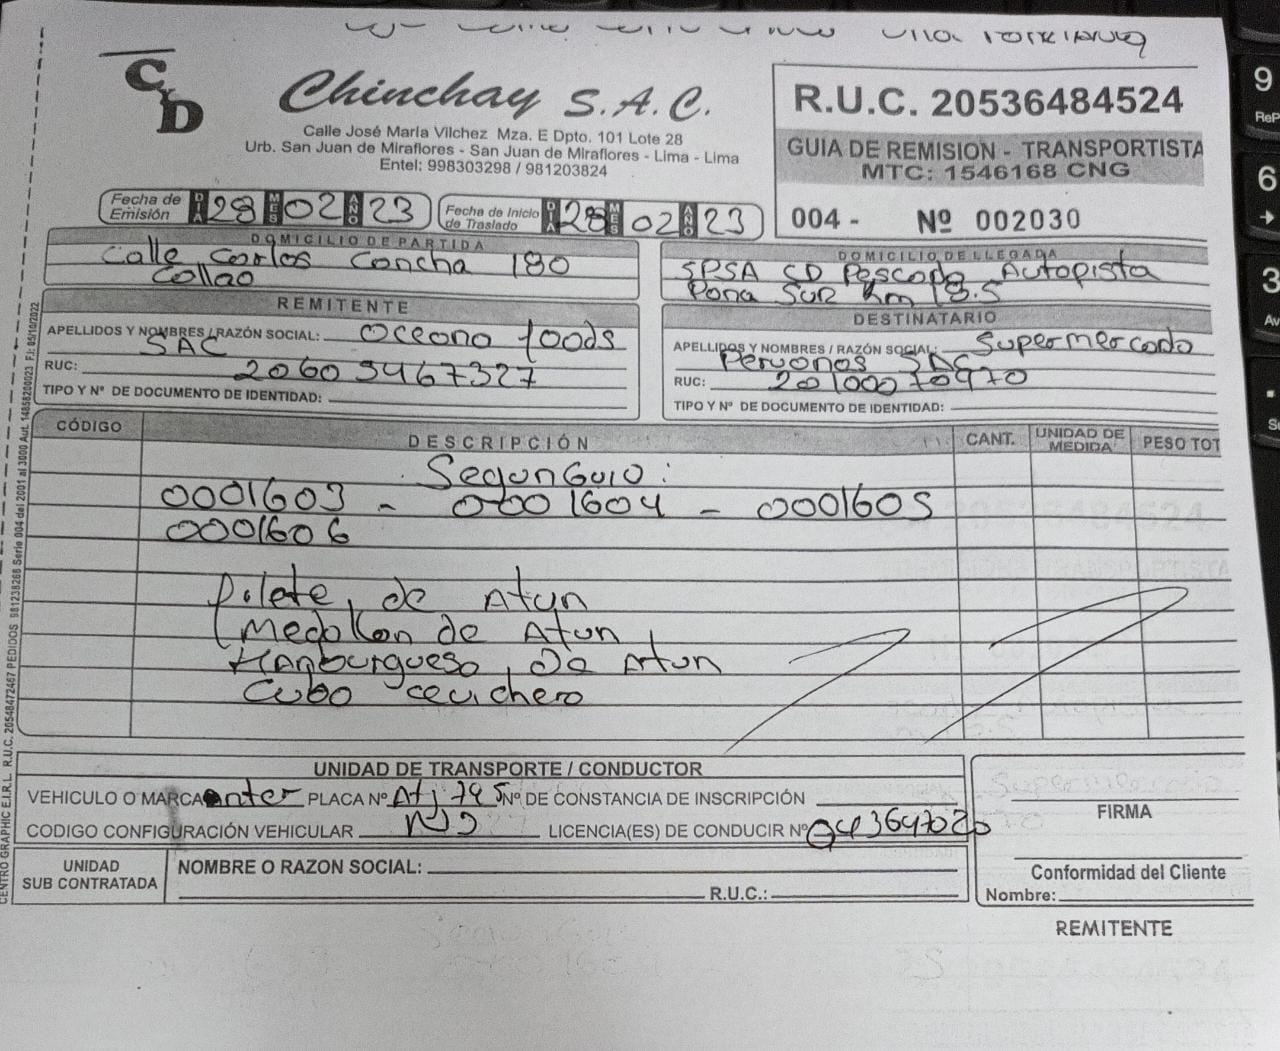 CyD
Chinchay S.A.C.
Calle José María Vilchez Mza. E Dpto. 101 Lote 28
Urb. San Juan de Miraflores - San Juan de Miraflores - Lima - Lima
Entel: 998303298 / 981203824
R.U.C. 20536484524
GUIA DE REMISION - TRANSPORTISTA
MTC: 1546168 CNG
004 - Nº 002030
Fecha de Emisión DIA 28 MES 02 AÑO 23
Fecha de Inicio de Traslado DIA 28 MES 02 AÑO 23
DOMICILIO DE PARTIDA
Calle Carlos Concha 180
Collao
DOMICILIO DE LLEGADA
SPSA CD Pescado Autopista
Pana Sur Km 18.5
REMITENTE
APELLIDOS Y NOMBRES / RAZÓN SOCIAL: Oceano foods
SAC
RUC: 20603467327
TIPO Y Nº DE DOCUMENTO DE IDENTIDAD:
DESTINATARIO
APELLIDOS Y NOMBRES / RAZÓN SOCIAL: Supermercado
Peruanos SAC
RUC: 20100070970
TIPO Y Nº DE DOCUMENTO DE IDENTIDAD:
CÓDIGO DESCRIPCIÓN CANT. UNIDAD DE MEDIDA PESO TOT
Segun Guia:
0001603 - 0001604 - 0001605
0001606
Filete de Atun
Medallon de Atun
Hamburguesa de Atun
Cubo cevichero
UNIDAD DE TRANSPORTE / CONDUCTOR
VEHICULO O MARCA PLACA Nº Atj 795 Nº DE CONSTANCIA DE INSCRIPCIÓN
CODIGO CONFIGURACIÓN VEHICULAR N2 LICENCIA(ES) DE CONDUCIR Nº Q43647020
UNIDAD SUB CONTRATADA
NOMBRE O RAZON SOCIAL:
R.U.C.:
FIRMA
Conformidad del Cliente
Nombre:
REMITENTE
CENTRO GRAPHIC E.I.R.L. R.U.C. 20548472467 PEDIDOS 981238268 Serie 004 del 2001 al 3000 Aut. 14858200023 F.I: 05/10/2022